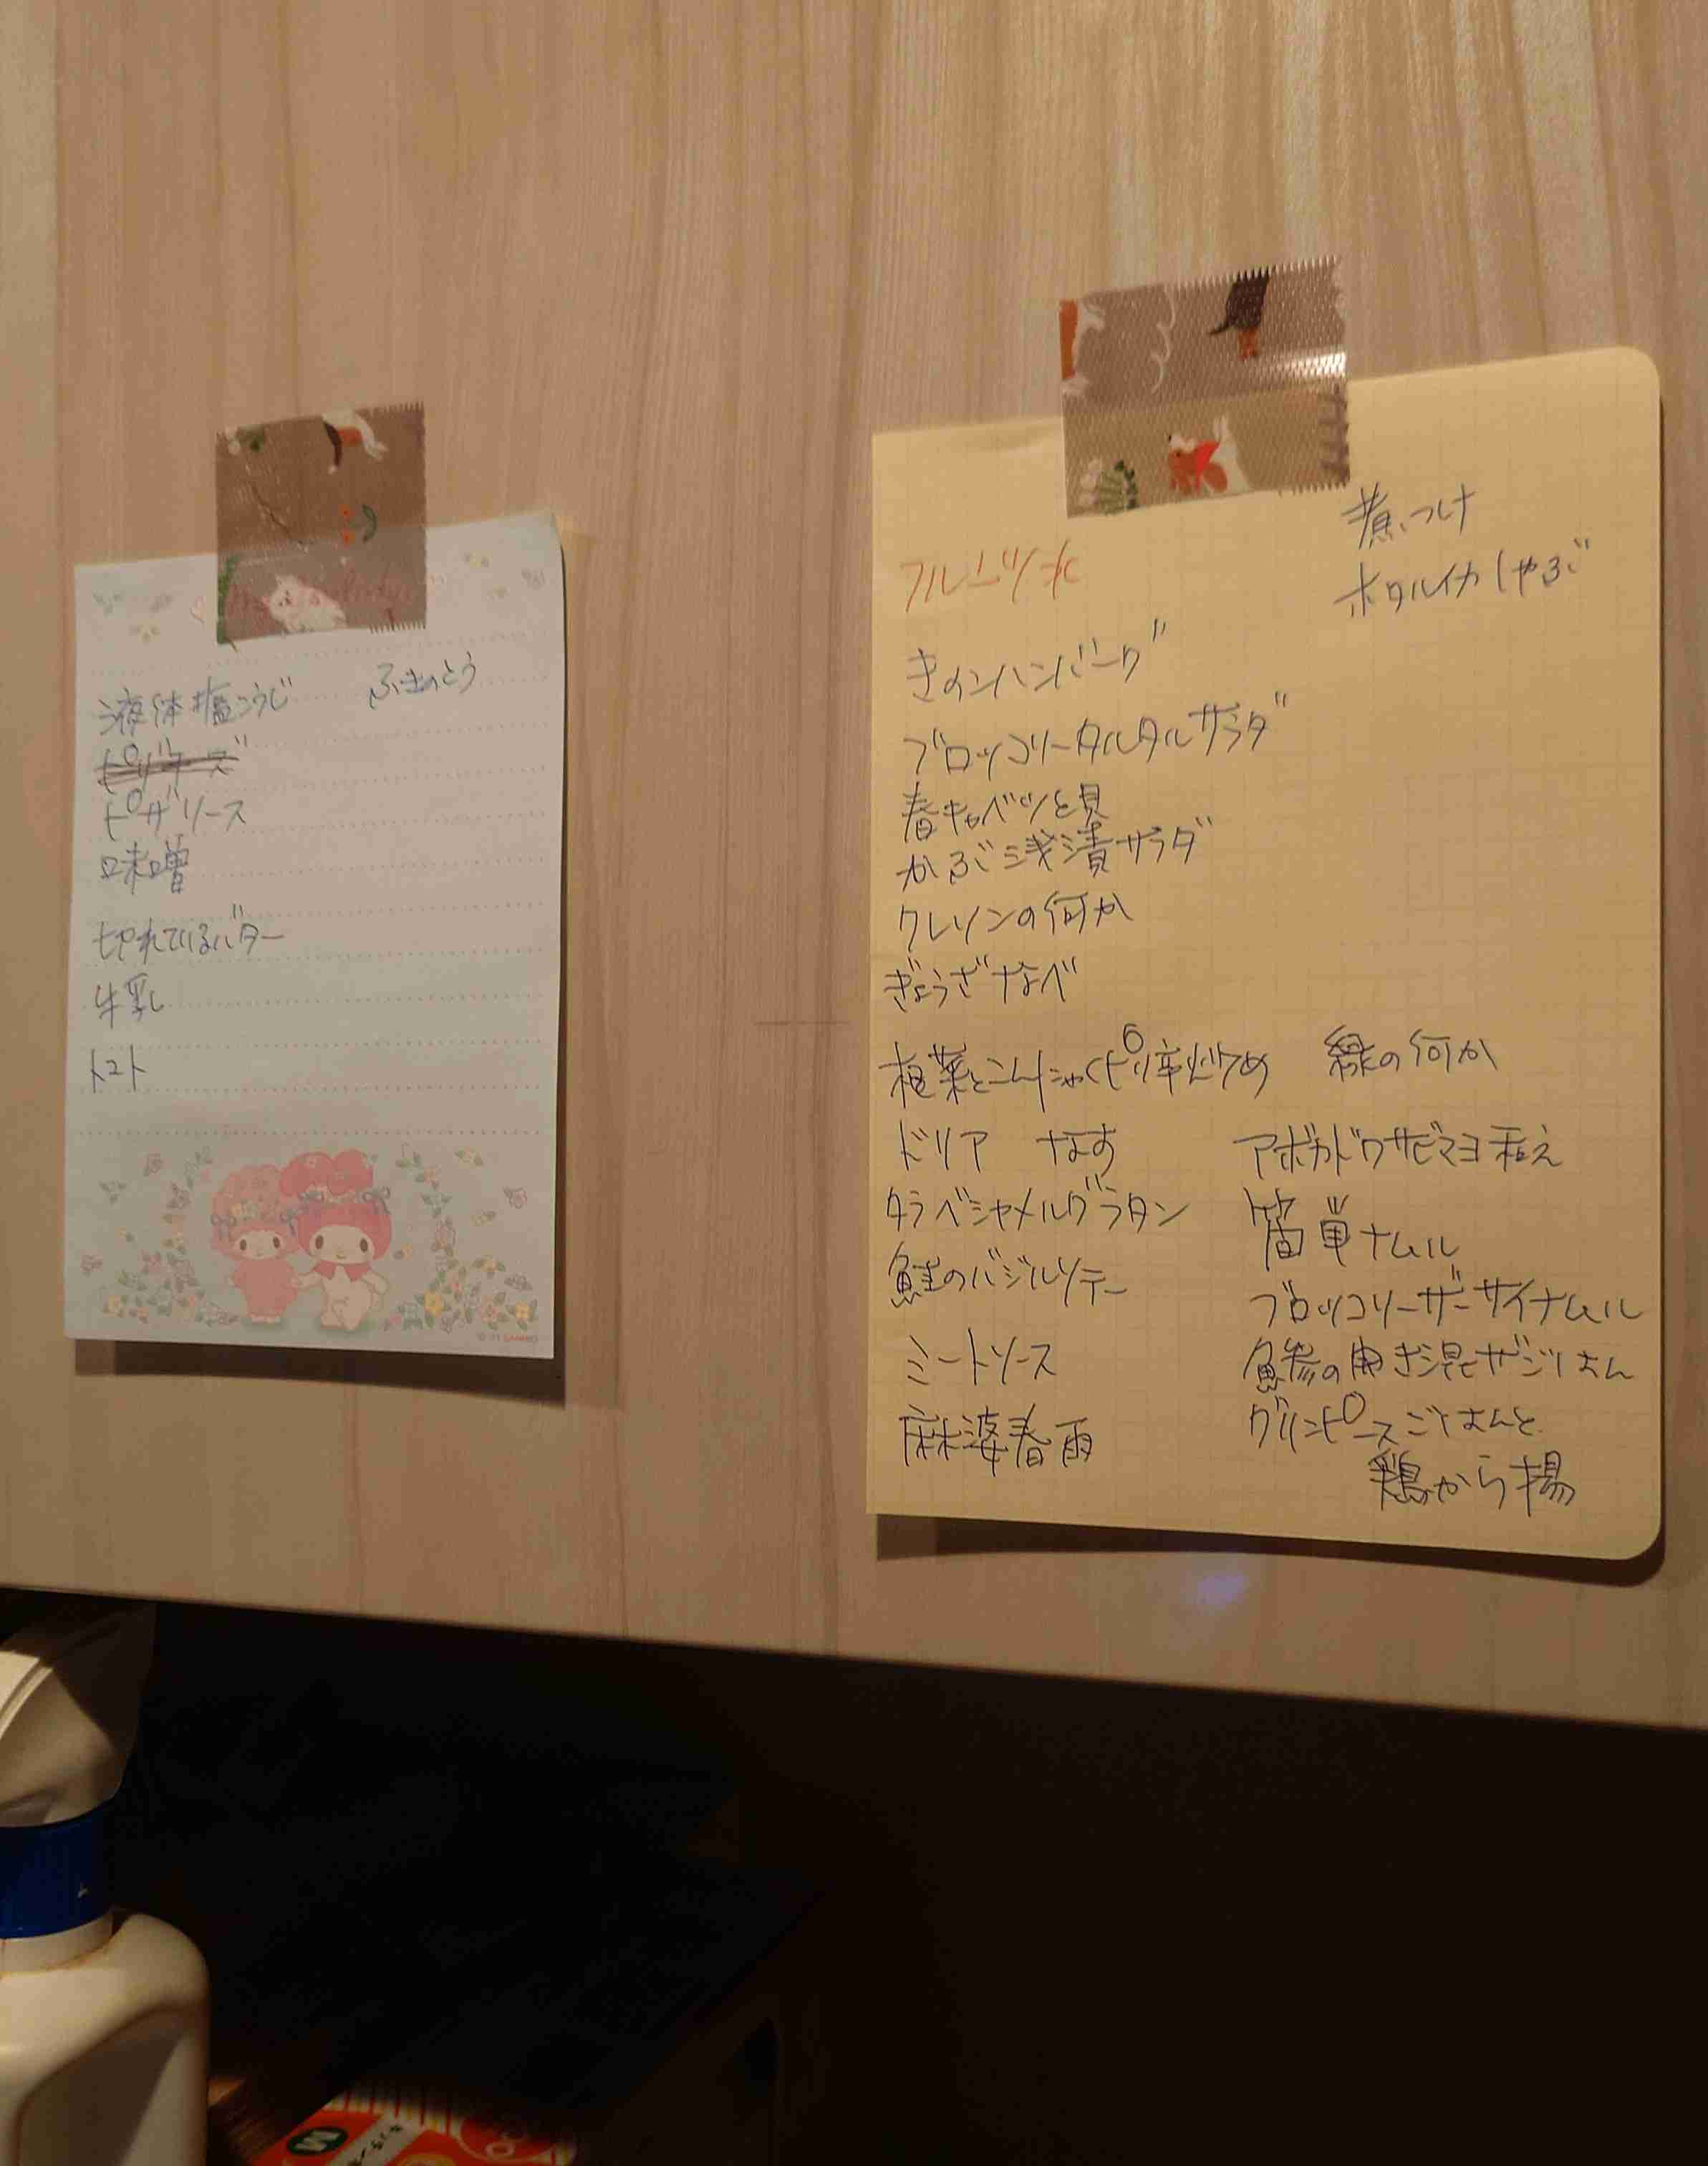 液体塩こうじ
ふきのとう
ピザソース
味噌
切れているバター
牛乳
トマト
フルーツ水
煮つけ
ホタルイカしゃぶ
きのこハンバーグ
ブロッコリータルタルサラダ
春キャベツと貝
かぶ浅漬サラダ
クレソンの何か
ぎょうざなべ
根菜とこんにゃくピリ辛炒め
緑の何か
ドリア なす
アボカドワサビマヨ和え
タラベシャメルグラタン
簡単ナムル
鮭のバジルソテー
ブロッコリーザーサイナムル
ミートソース
鯵の 混ぜごはん
麻婆春雨
グリンピースごはんと
鶏から揚